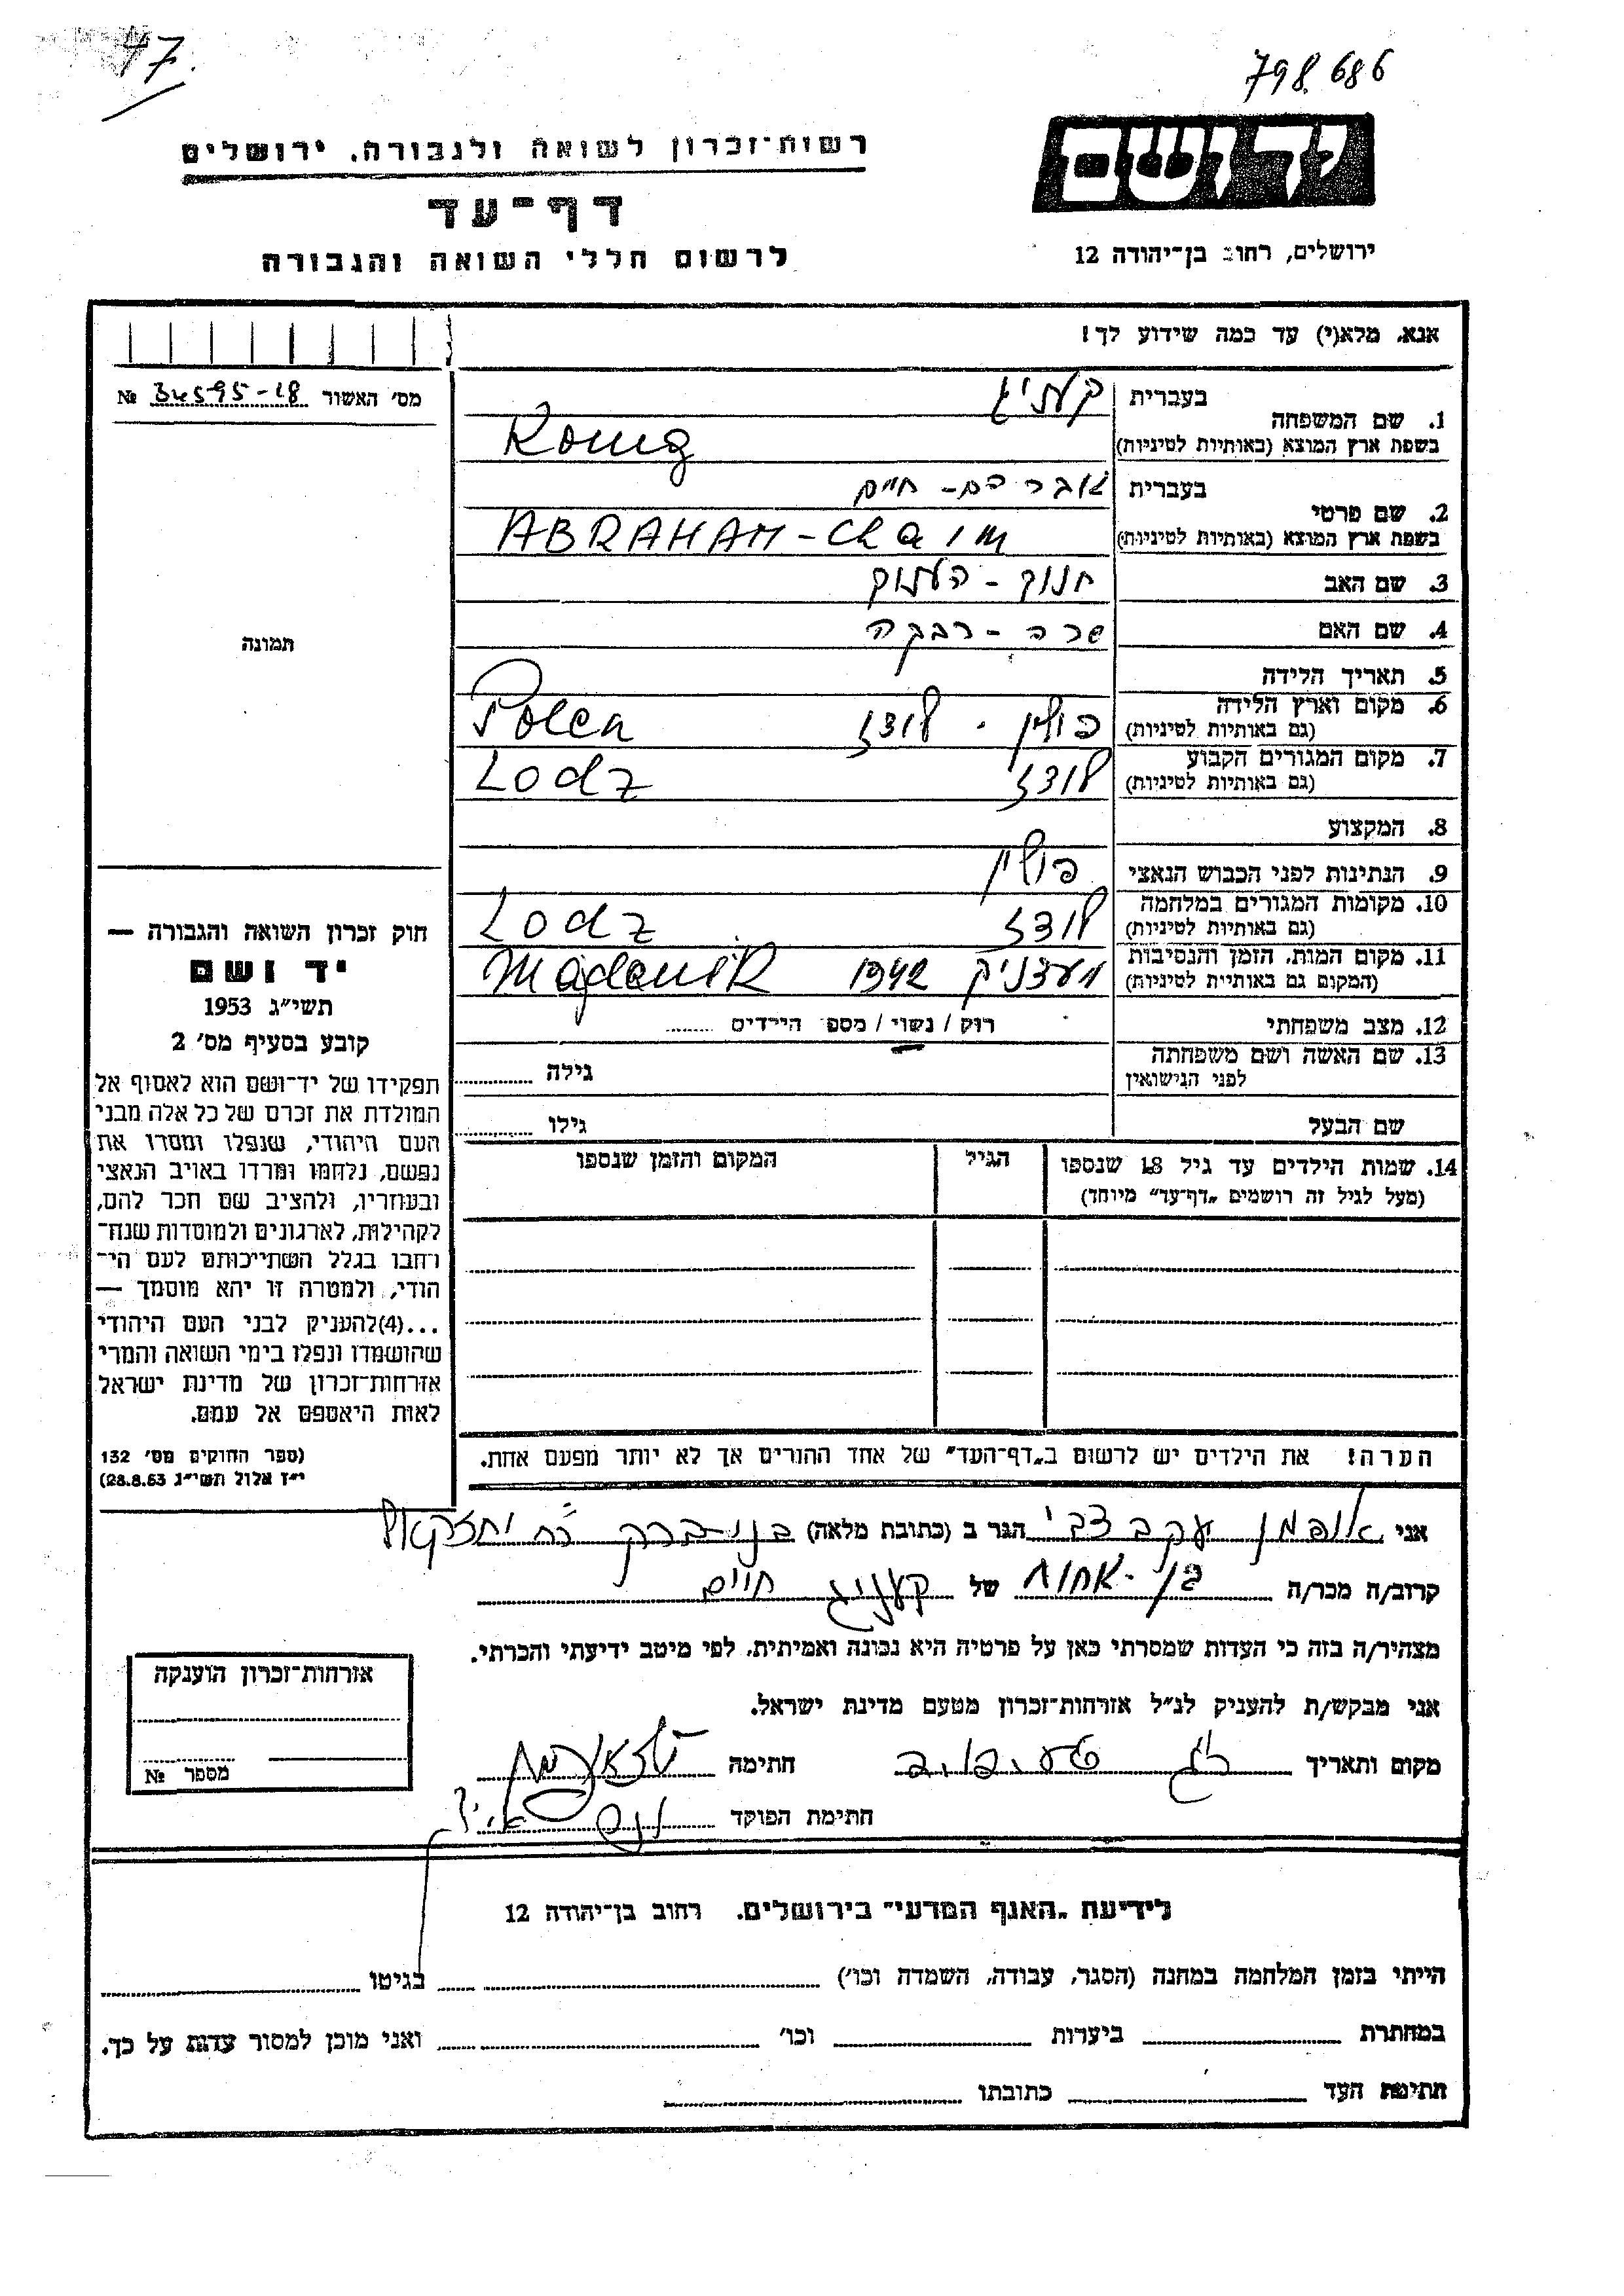 47.
798.686
ידושם
רשות־זכרון לשואה ולגבורה, ירושלים
דף־עד
לרשום חללי השואה והגבורה
ירושלים, רחוב בן־יהודה 12
אנא, מלא(י) עד כמה שידוע לך!
מס' האשור 34595-18 №
תמונה
1. שם המשפחה בעברית קעניג
בשפת ארץ המוצא (באותיות לטיניות) Konig
2. שם פרטי בעברית אברהם - חיים
בשפת ארץ המוצא (באותיות לטיניות) ABRAHAM - Chaim
3. שם האב חנוך - העניך
4. שם האם שרה - רבקה
5. תאריך הלידה
6. מקום וארץ הלידה (גם באותיות לטיניות) פולין . לודז Polen
7. מקום המגורים הקבוע (גם באותיות לטיניות) לודז Lodz
8. המקצוע
9. הנתינות לפני הכבוש הנאצי פולין
10. מקומות המגורים במלחמה (גם באותיות לטיניות) לודז Lodz
11. מקום המות, הזמן והנסיבות (המקום גם באותיות לטיניות) 1942
12. מצב משפחתי רווק / נשוי / מספר הילדים
13. שם האשה ושם משפחתה לפני הנישואין גילה
שם הבעל גילו
14. שמות הילדים עד גיל 18 שנספו (מעל לגיל זה רושמים „דף־עד” מיוחד) הגיל המקום והזמן שנספו
הערה! את הילדים יש לרשום ב„דף־העד” של אחד ההורים אך לא יותר מפעם אחת.
חוק זכרון השואה והגבורה —
יד ושם
תשי״ג 1953
קובע בסעיף מס' 2
תפקידו של יד־ושם הוא לאסוף אל
המולדת את זכרם של כל אלה מבני
העם היהודי, שנפלו ומסרו את
נפשם, נלחמו ומרדו באויב הנאצי
ובעוזריו, ולהציב שם וזכר להם,
לקהילות, לארגונים ולמוסדות שנח־
רחבו בגלל השתייכותם לעם הי־
הודי, ולמטרה זו יהא מוסמך —
...(4)להעניק לבני העם היהודי
שהושמדו ונפלו בימי השואה והמרי
אזרחות־זכרון של מדינת ישראל
לאות היאספם אל עמם.
(ספר החוקים מס' 132
י״ז אלול תשי״ג 28.8.53)
אני יעקב צבי הגר ב (כתובת מלאה) בני-ברק רח יחזקאל
קרוב/ה מכר/ה בן - אחות של קעניג חיים
מצהיר/ה בזה כי העדות שמסרתי כאן על פרטיה היא נכונה ואמיתית, לפי מיטב ידיעתי והכרתי.
אני מבקש/ת להעניק לנ״ל אזרחות־זכרון מטעם מדינת ישראל.
מקום ותאריך חתימה
חתימת הפוקד
אזרחות־זכרון הוענקה
מספר №
לידיעת „האגף המדעי” בירושלים, רחוב בן־יהודה 12
הייתי בזמן המלחמה במחנה (הסגר, עבודה, השמדה וכו') בגיטו
במחתרת ביערות וכו' ואני מוכן למסור עדות על כך.
חתימת העד כתובתו